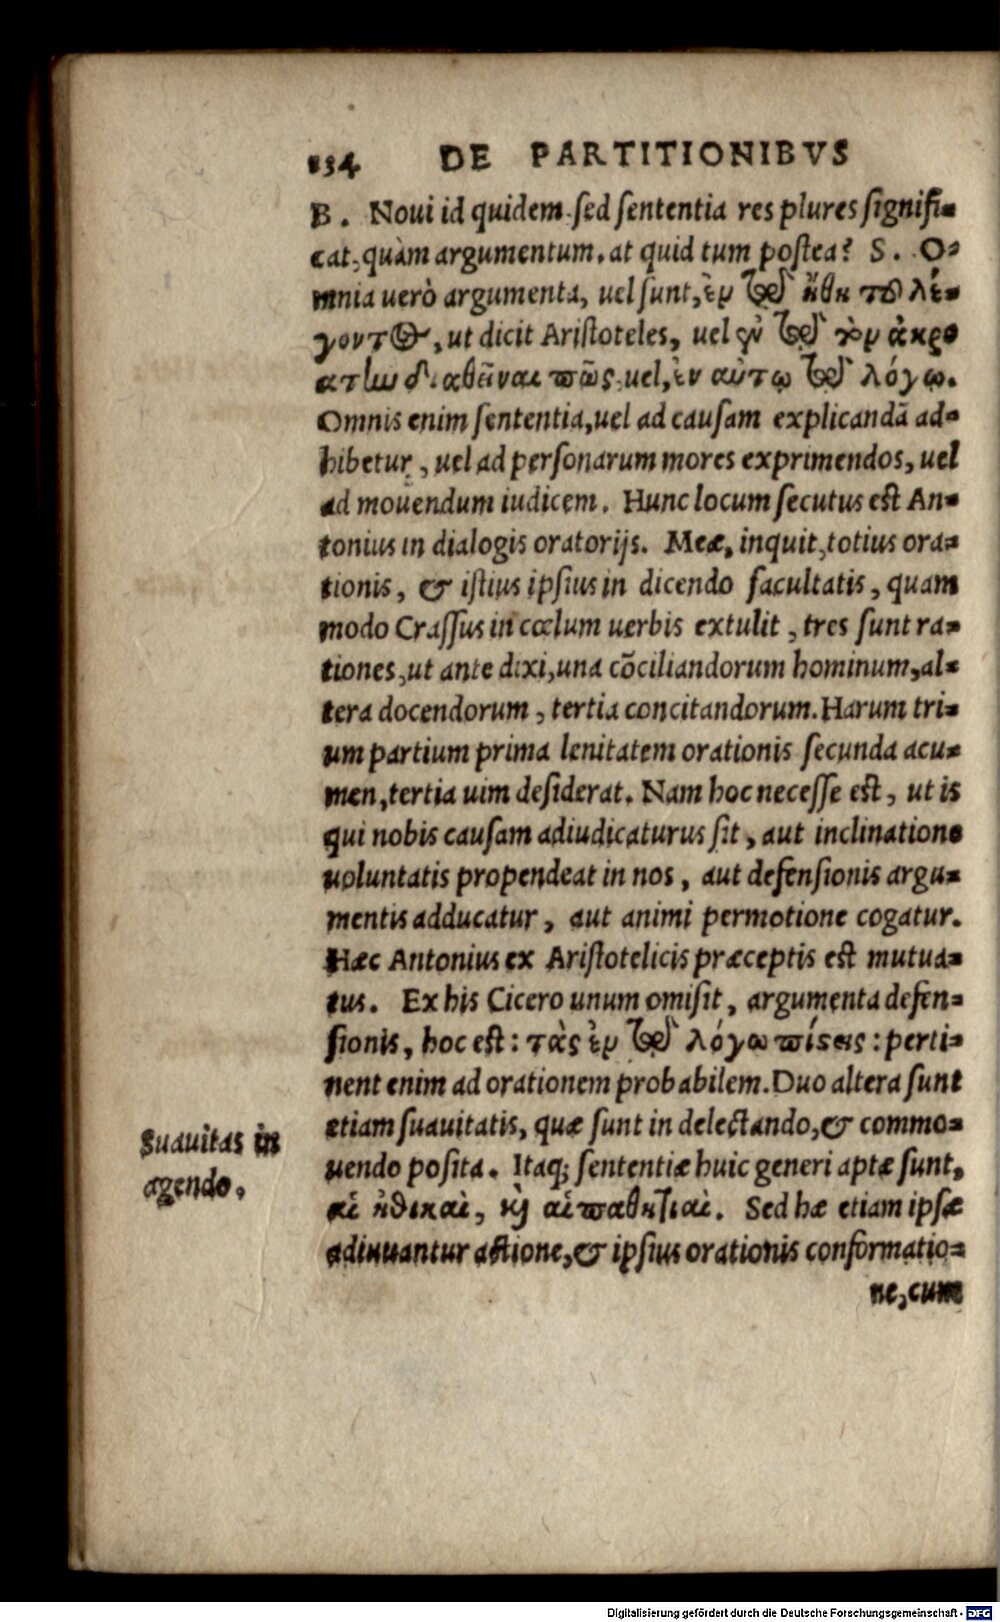 134 DE PARTITIONIBVS
B. Noui id quidem. sed sententia res plures signifi-
cat, quàm argumentum. at quid tum postea? S. O-
mnia uerò argumenta, uel sunt, ἐν τῷ ἤθει τοῦ λέ-
γοντος, ut dicit Aristoteles, uel ἐν τῷ τὸν ἀκρο
ατὴν διαθεῖναι πῶς, uel, ἐν αὐτῷ τῷ λόγῳ.
Omnis enim sententia, uel ad causam explicandã ad-
hibetur, uel ad personarum mores exprimendos, uel
ad mouendum iudicem. Hunc locum secutus est An-
tonius in dialogis oratorijs. Meæ, inquit, totius ora-
tionis, & istius ipsius in dicendo facultatis, quam
modo Crassus in cœlum uerbis extulit, tres sunt ra-
tiones, ut ante dixi, una cõciliandorum hominum, al-
tera docendorum, tertia concitandorum. Harum tri-
um partium prima lenitatem orationis secunda acu-
men, tertia uim desiderat. Nam hoc necesse est, ut is
qui nobis causam adiudicaturus sit, aut inclinatione
uoluntatis propendeat in nos, aut defensionis argu-
mentis adducatur, aut animi permotione cogatur.
Hæc Antonius ex Aristotelicis præceptis est mutua-
tus. Ex his Cicero unum omisit, argumenta defen-
sionis, hoc est: τὰς ἐν τῷ λόγῳ πίστεις: perti-
nent enim ad orationem probabilem. Duo altera sunt
etiam suauitatis, quæ sunt in delectando, & commo-
uendo posita. Itaq; sententiæ huic generi aptæ sunt,
αἱ ἠθικαὶ, καὶ αἱ παθητικαὶ. Sed hæ etiam ipsæ
adiuuantur actione, & ipsius orationis conformatio-
ne, cum
Suauitas in
agendo.
Digitalisierung gefördert durch die Deutsche Forschungsgemeinschaft - DFG